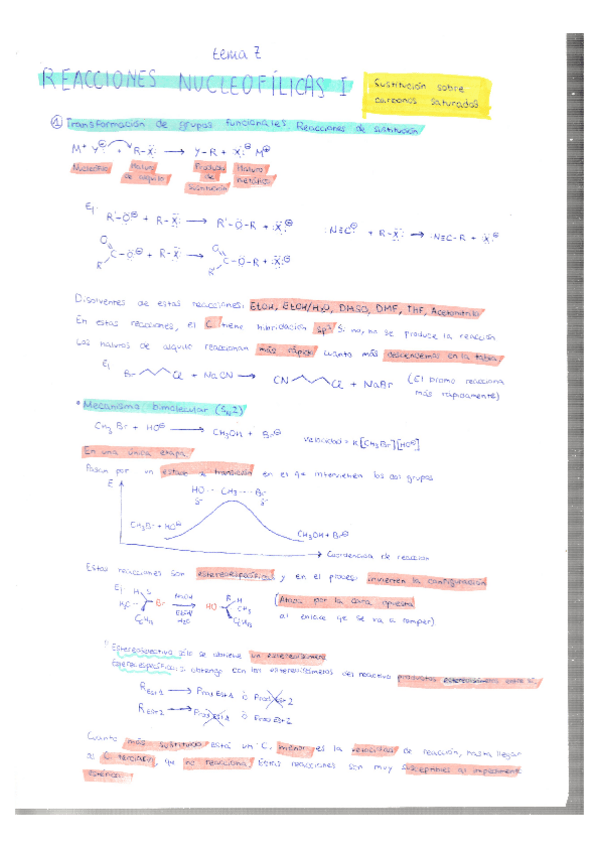 tema 7
REACCIONES NUCLEOFÍLICAS I
Sustitución sobre
carbonos saturados
① Transformación de grupos funcionales. Reacciones de sustitución
M⁺ Y:⊖ + R-X: → Y-R + :X:⊖ M⊕
Nucleófilo Haluro de alquilo Producto de sustitución Haluro metálico
Ej:
R'-O:⊖ + R-X: → R'-O-R + :X:⊖ :N≡C:⊖ + R-X: → :N≡C-R + :X:⊖
O
R C-O:⊖ + R-X: → R C-O-R + :X:⊖
Disolventes de estas reacciones: EtOH, EtOH/H₂O, DMSO, DMF, THF, Acetonitrilo
En estas reacciones, el C tiene hibridación sp³ Si no, no se produce la reacción
Los haluros de alquilo reaccionan más rápido cuanto más descendemos en la tabla
Ej Br Cl + NaCN → CN Cl + NaBr (El bromo reacciona
más rápidamente)
• Mecanismo bimolecular (SN2)
CH₃Br + HO⊖ → CH₃OH + Br⊖ velocidad = K[CH₃Br][HO⊖]
En una única etapa
Pasan por un estado de transición en el q⁺ intervienen los dos grupos
E HO---CH₃---Br
δ⁻ δ⁻
CH₃Br + HO⊖ CH₃OH + Br⊖
→ Coordenada de reacción
Estas reacciones son estereoespecíficas y en el proceso invierten la configuración
Ej H₃C Br NaOH EtOH H₂O HO H CH₃ C₆H₁₃ (Ataca por la cara opuesta
al enlace que se va a romper)
Estereoselectiva sólo se obtiene un estereoisómero
Estereoespecífica: si obtengo con los estereoisómeros del reactivo productos estereoisómeros entre sí.
R Est 1 → Prod Est 1 ó Prod Est 2
R Est 2 → Prod Est 1 ó Prod Est 2
Cuanto más sustituido está un C, menor es la velocidad de reacción, hasta llegar
al C terciario, que no reacciona. Estas reacciones son muy susceptibles al impedimento
estérico.